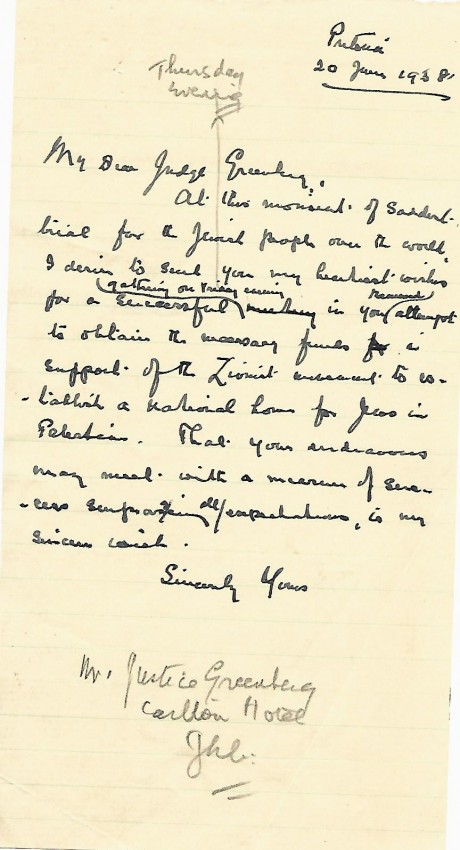 Pretoria
20 June 1938
Thursday
evening
My Dear Judge Greenberg,
At this moment of Saddest
trial for the Jewish People over the world,
I desire to send you my heartiest wishes
gathering on Friday evening renewed
for a successful meeting in your attempt
to obtain the necessary funds in
support of the Zionist movement to es-
-tablish a national home for Jews in
Palestine. That your endeavours
may meet with a measure of suc-
-cess surpassing all expectations, is my
sincere wish.
Sincerely Yours
Mr. Justice Greenberg
Carlton Hotel
Jhb.